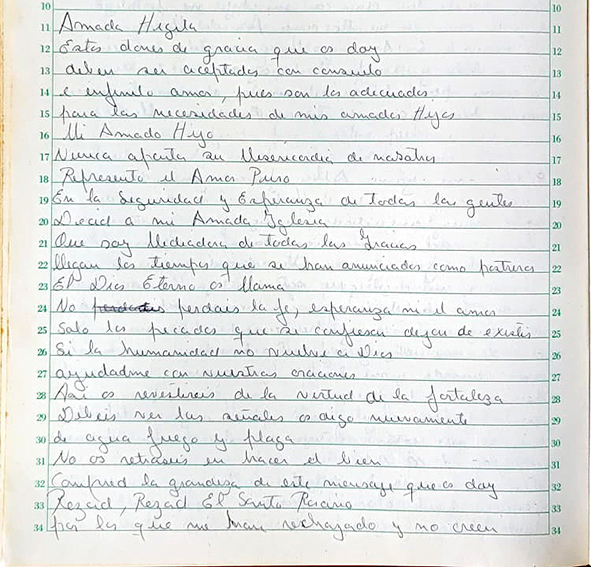 10 10
11 Amada Hijita 11
12 Estos dones de gracia que os doy 12
13 deben ser aceptados con consuelo 13
14 e infinito amor, pues son los adecuados 14
15 para las necesidades de mis amados Hijos 15
16 Mi Amado Hijo 16
17 Nunca aparta su Misericordia de nosotros 17
18 Represento el Amor Puro 18
19 En la Seguridad y Esperanza de todas las gentes 19
20 Decid a mi Amada Iglesia 20
21 Que soy Mediadora de todas las Gracias 21
22 llegan los tiempos que se han anunciados como postreros 22
23 El Dios Eterno os llama 23
24 No perdais la fe, esperanza ni el amor 24
25 Solo los pecados que se confiesan dejan de existir 25
26 Si la humanidad no vuelve a Dios 26
27 ayudadme con vuestras oraciones 27
28 Asi os revestireis de la virtud de la fortaleza 28
29 Debeis ver las señales os digo nuevamente 29
30 de agua fuego y plaga 30
31 No os retraseis en hacer el bien 31
32 la grandeza de este mensaje que os doy 32
33 Rezad, Rezad El Santo Rosario 33
34 por los que me han rechazado y no creen 34